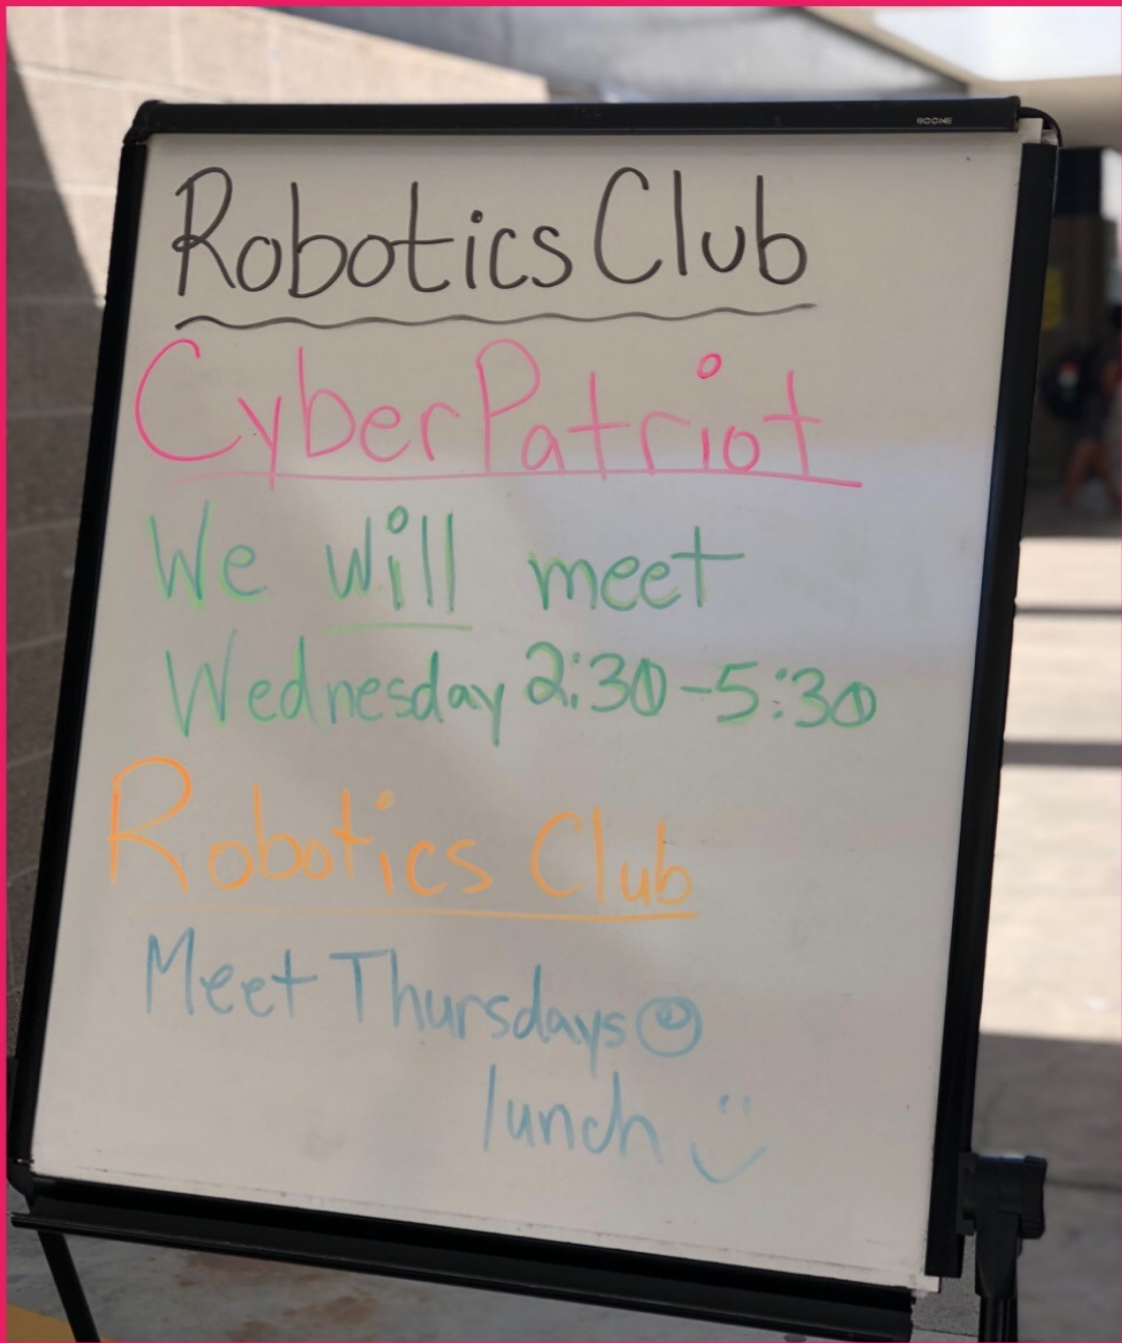 BOONE
Robotics Club
CyberPatriot
We will meet
Wednesday 2:30-5:30
Robotics Club
Meet Thursdays @
lunch :)